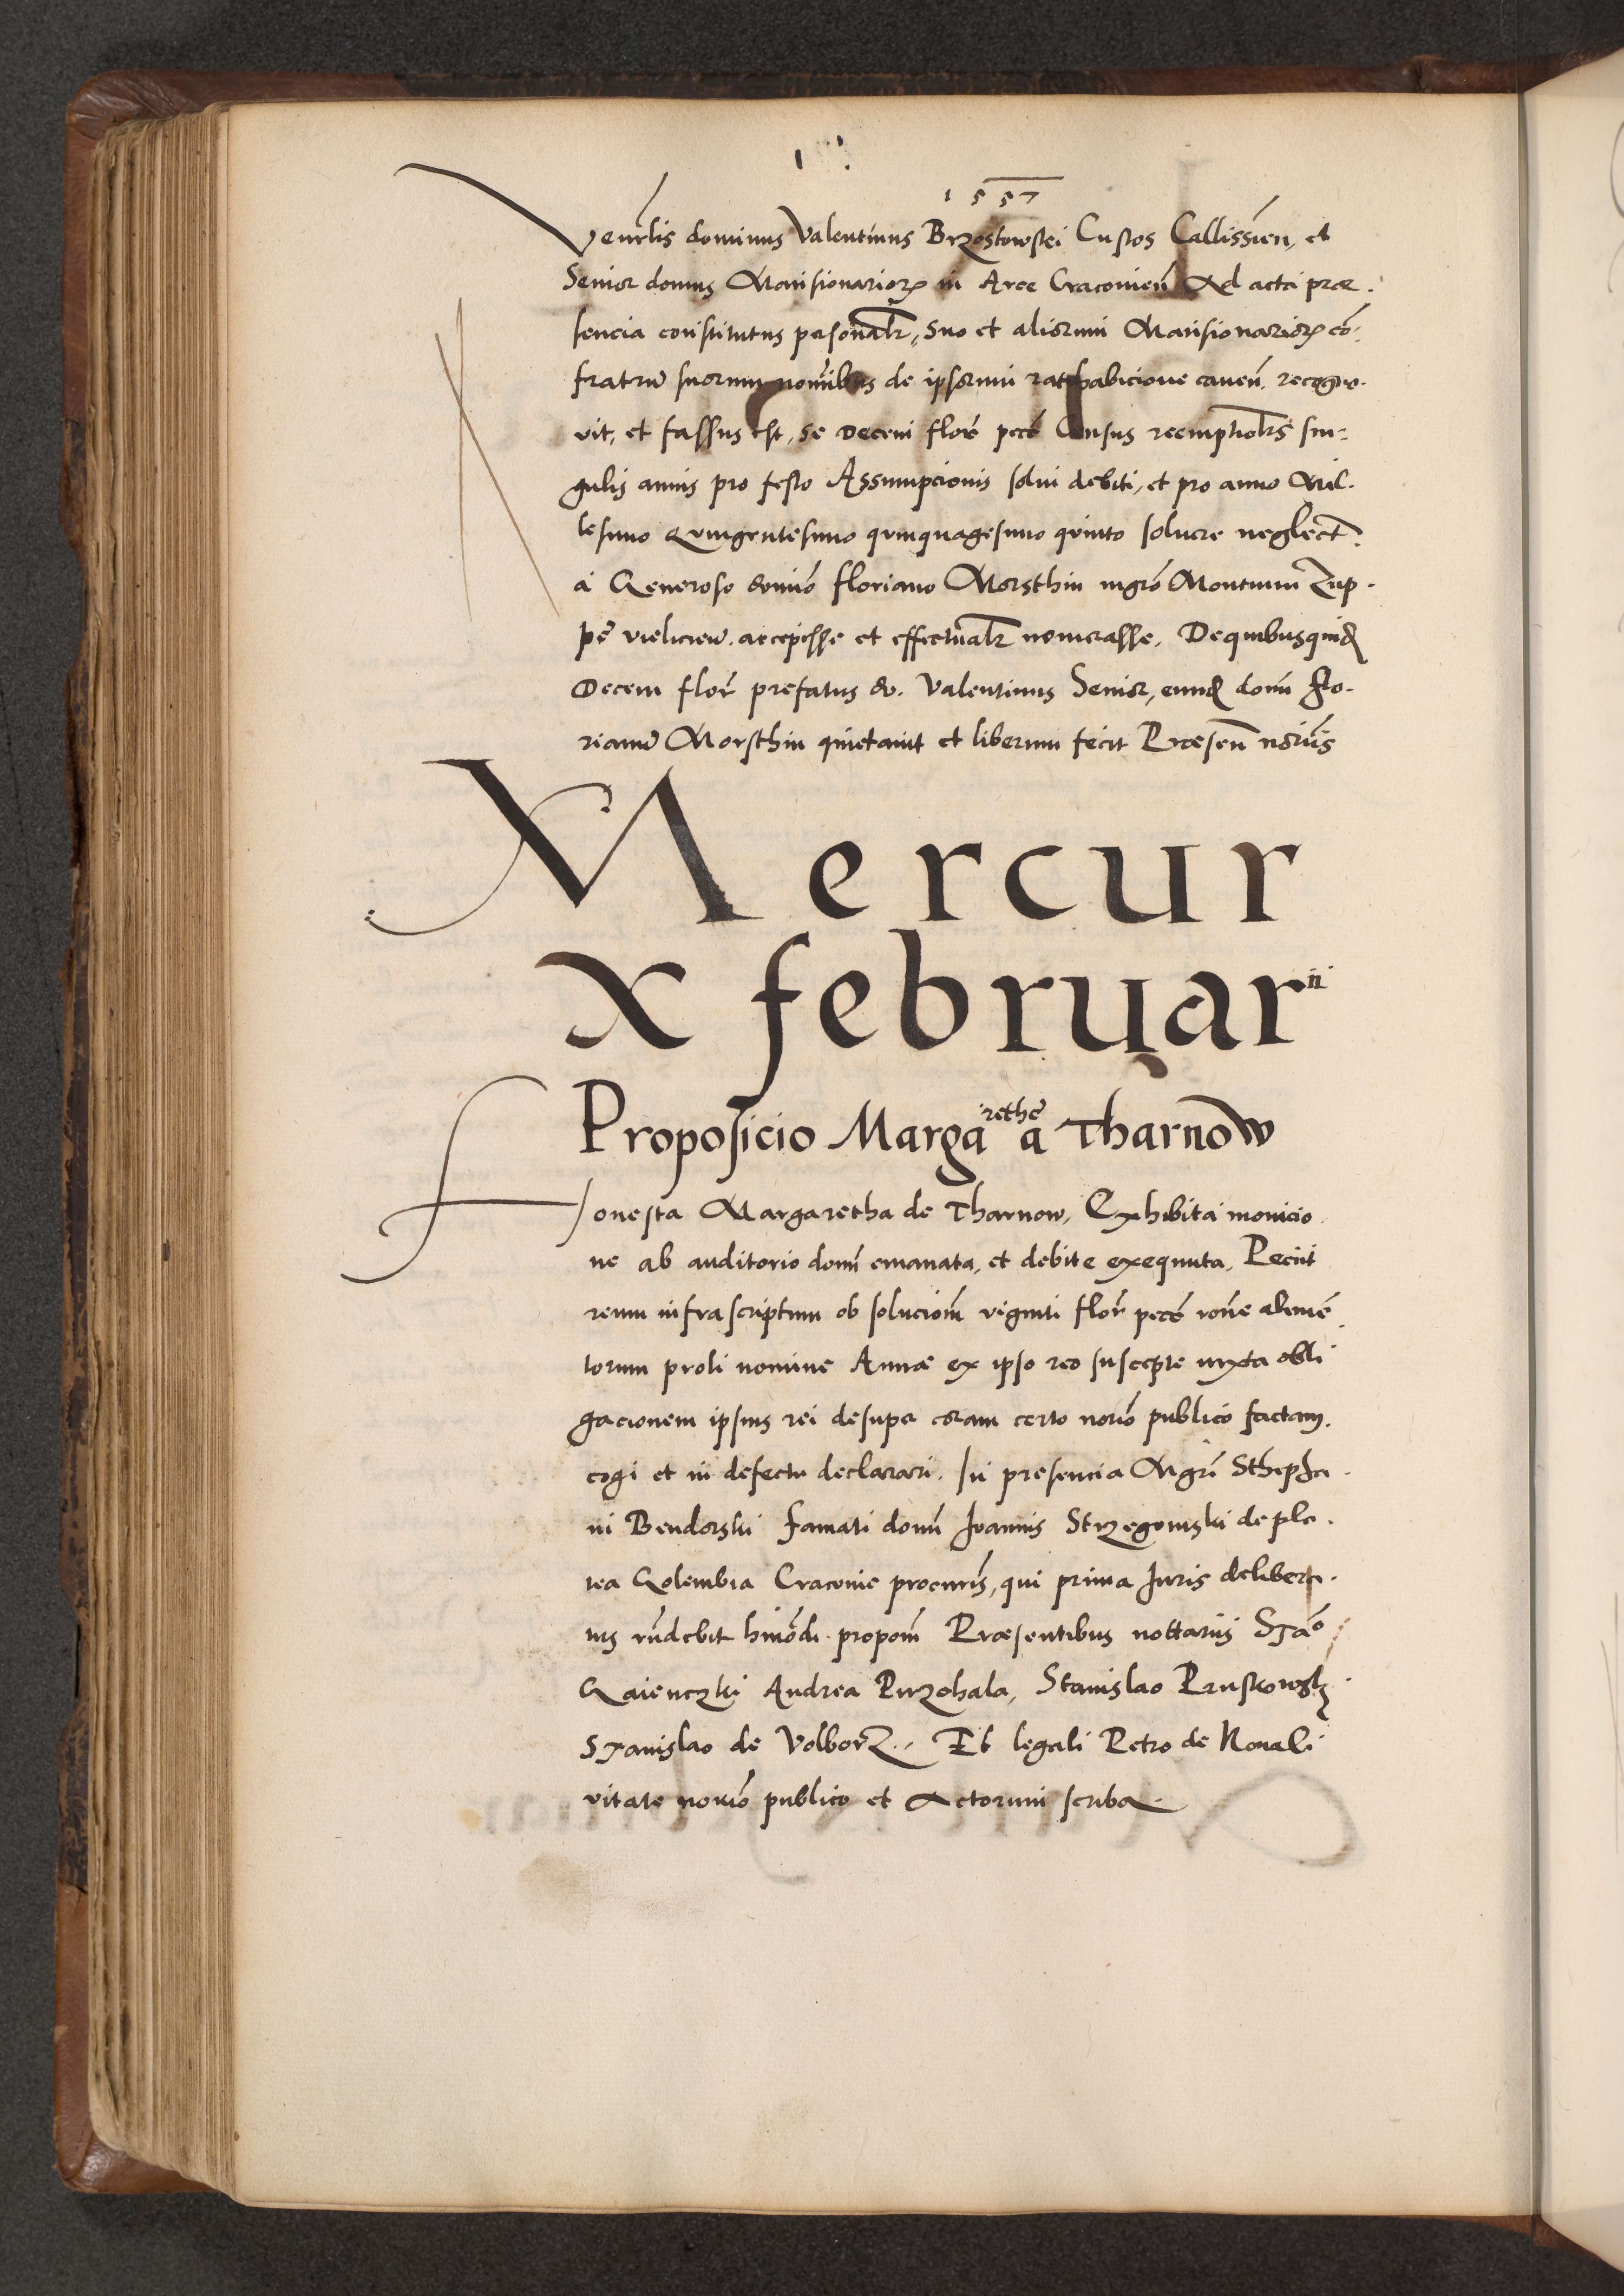 1557
Venerlis dominus Valentinus Brzostowskei Custos Callissien, et
Senior domus Mansionarior in Arce Cracovien Ad acta præ
sencia constitutus personalr, suo et aliorum Mansionarior cō
fratrū suorum nominibus de ipsorum rathabicione caven. recogno
vit, et fassus est, se Decem florē pecc̄ Census reemptiolrs sin
gulis annis pro festo Assumpcionis solui debiti, et pro anno Mil
lesimo Quingentesimo quinquagesimo quinto soluere neglect
a Generoso domīo floriano Morsthin mgrō Montium Zup
pē vieliciēn. accepisse et effectualr numerasse. De quibusquid
Decem flor̄ prefatus do. Valentinus Senior, eund domī flo
rianū Morsthin quietauit et liberum fecit Præsen n̄oriis
Mercur
X februarii
Proposicio Margarethē a Tharnow
Honesta Margaretha de Tharnow, Exhibita monicio
ne ab auditorio domī emanata, et debite exequuta, Peciit
reum infrascriptum ob solucionē viginti flor̄ pecc̄ rōne alimē
torum proli nomine Annæ ex ipso reo suscepte iuxta obli
gacionem ipsius rei desuper coram certo norio publico factam.
cogi et in defectu declarari. In presencia Mgri Sthepha
ni Bendorski famati domī Joannis Strzegomski de pla
tea Golembia Cracovie procuris, qui prima Juris delibera
tus rn̄debit hm̄odi propoīn Præsentibus nottariis Stāo
Gaienczki Andrea Przchala, Stanislao Pruskowsk
Stanislao de Volborz. Et legali Petro de Noua Ci
vitate norio publico et Actorum scriba